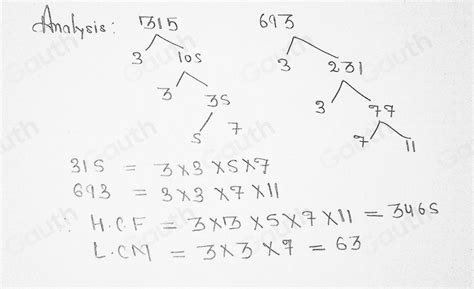 Analysis: 315 693
3 105 3 231
3 35 3 77
5 7 7 11
315 = 3×3×5×7
693 = 3×3×7×11
∴ H.C.F = 3×3×5×7×11 = 3465
L.CM = 3×3×7 = 63
Gauth